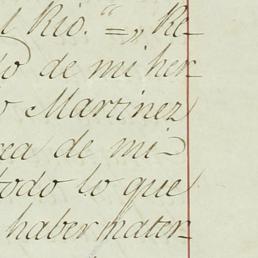 l Rio." = „ Re-
o de mi her-
o Martinez
rea de mi
todo lo que
haber mater-